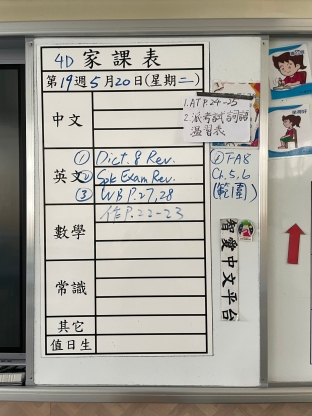 4D 家課表
第19週5月20日(星期二)
中文
1.ATP.24-25
2.派考試詞語
溫習表
英文
① Dict. 8 Rev.
② Spk Exam Rev.
③ WB P.27,28
④ TA8
Ch.5,6
(範圍)
數學
作P.22-23
常識
其它
值日生
智愛中文平台